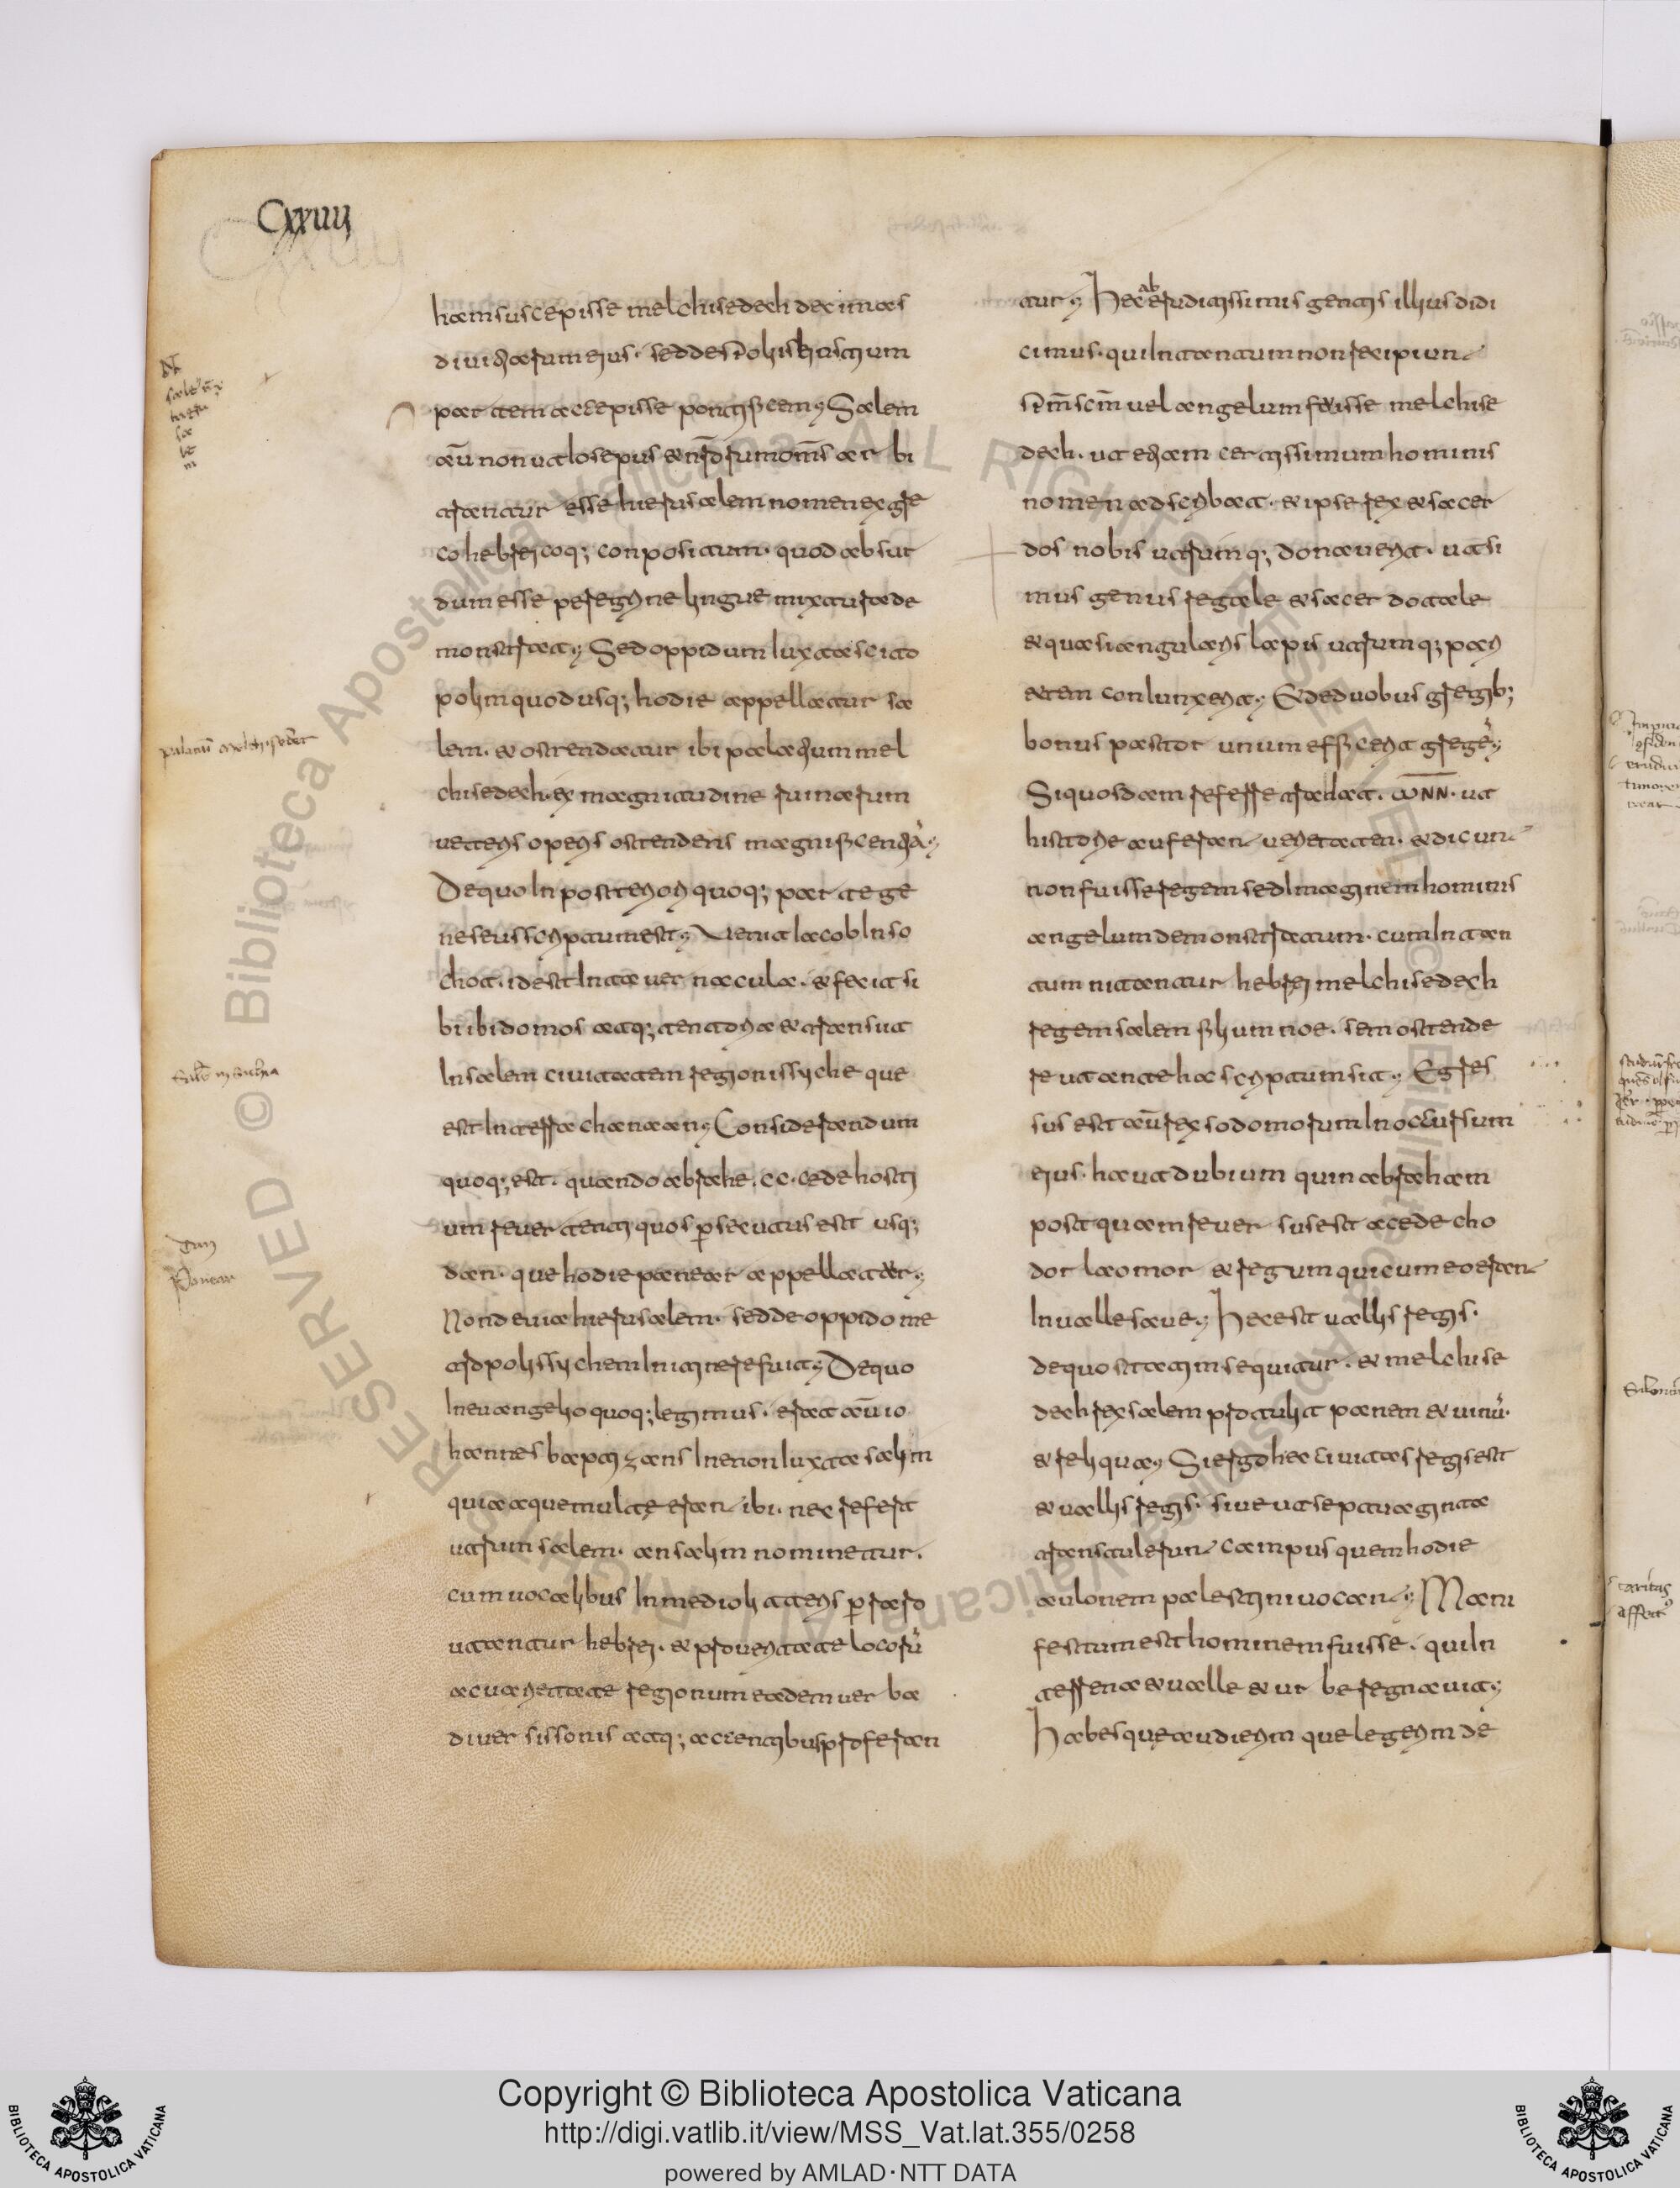 Cxxiiii
hamsuscepisse melchisedech decimas
diuitiarum eius. sed de spoliis hostium
partem accepisse pontificem; Salem
aū non ut Iosepus & nr̄orum om̄s arbi
trantur esse hierusalem nomen ex gre
co hebreicoq; conpositum. quod absur
dum esse peregrine lingue mixtura de
monstrat; Sed oppidum Iuxta scito
polim quod usq; hodie appellatur sa
lem. & ostendatur ibi palatium mel
chisedech. ex magnitudine ruinarum
ueteris operis ostendens magnificentia;
De quo In posteriori quoq; parte ge
neseus scriptum est; Venit Iacob In so
chot. idest In tabernacula. & fecit si
bi ibi domos atq; tentoria & transiut
In salem ciuitatem regionis syche que
est In terra chanaan; Considerandum
quoq; est. quando abrahe. cede hosti
um reuertenti quos ꝑsecutus est usq;
dan. que hodie panear appellatur;
Non deuia hierusalem. sed de oppido me
tropoli sychem In itinere fuit; De quo
In euangelio quoq; legimus. erat aū io
hannes baptizans In enon Iuxta salim
quia aque multe eran ibi. nec refert
utrum salem. an salim nominetur.
cum uocalibus In medio litteris ꝑraro
utantur hebrei. & prouoluntate locorū
ac uarietate regionum eadem uerba
diuersis sonis atq; accentibus proferan
tur; Hec ab eruditissimis gentis illius didi
cimus. qui In tantum non recipiun
sp̄m sc̄m uel angelum fuisse melchise
dech. ut etiam certissimum hominis
nomen adscribat. & ipse rex & sacer
dos nobis utrumq; donauerit. ut si
mus genus regale & sacerdotale
& quasi angularis lapis utrumq; pari
etem conIunxerit; & de duobus gregib;
bonus pastor unum effecerit gregē;
Si quosdam referre
non fuisse regem sed Imaginem hominis
angelum demonstratum. cum In tan
tum nitantur hebrei melchisedech
regem salem filium noe. sem ostende
re ut ante hac scriptum sit; Egres
sus est aū rex sodomorum In occursum
eius. haut dubium quin abraham
postquam reuersus est a cede cho
dorlaomor & regum qui cum eo eran
In ualle saue; Hec est uallis regis.
de quo statim sequitur. & melchise
dech rex salem protulit panem & uinū.
& reliqua; Si ergo hec ciuitas regis est
& uallis regis. siue ut septuaginta
transtulerun campus quem hodie
aulonem palestini uocan; Mani
festum est hominem fuisse. qui In
terrena & ualle & urbe regnauit;
Habes que audierim que legerim de
Copyright © Biblioteca Apostolica Vaticana
http://digi.vatlib.it/view/MSS_Vat.lat.355/0258
powered by AMLAD·NTT DATA
BIBLIOTECA APOSTOLICA VATICANA
BIBLIOTECA APOSTOLICA VATICANA